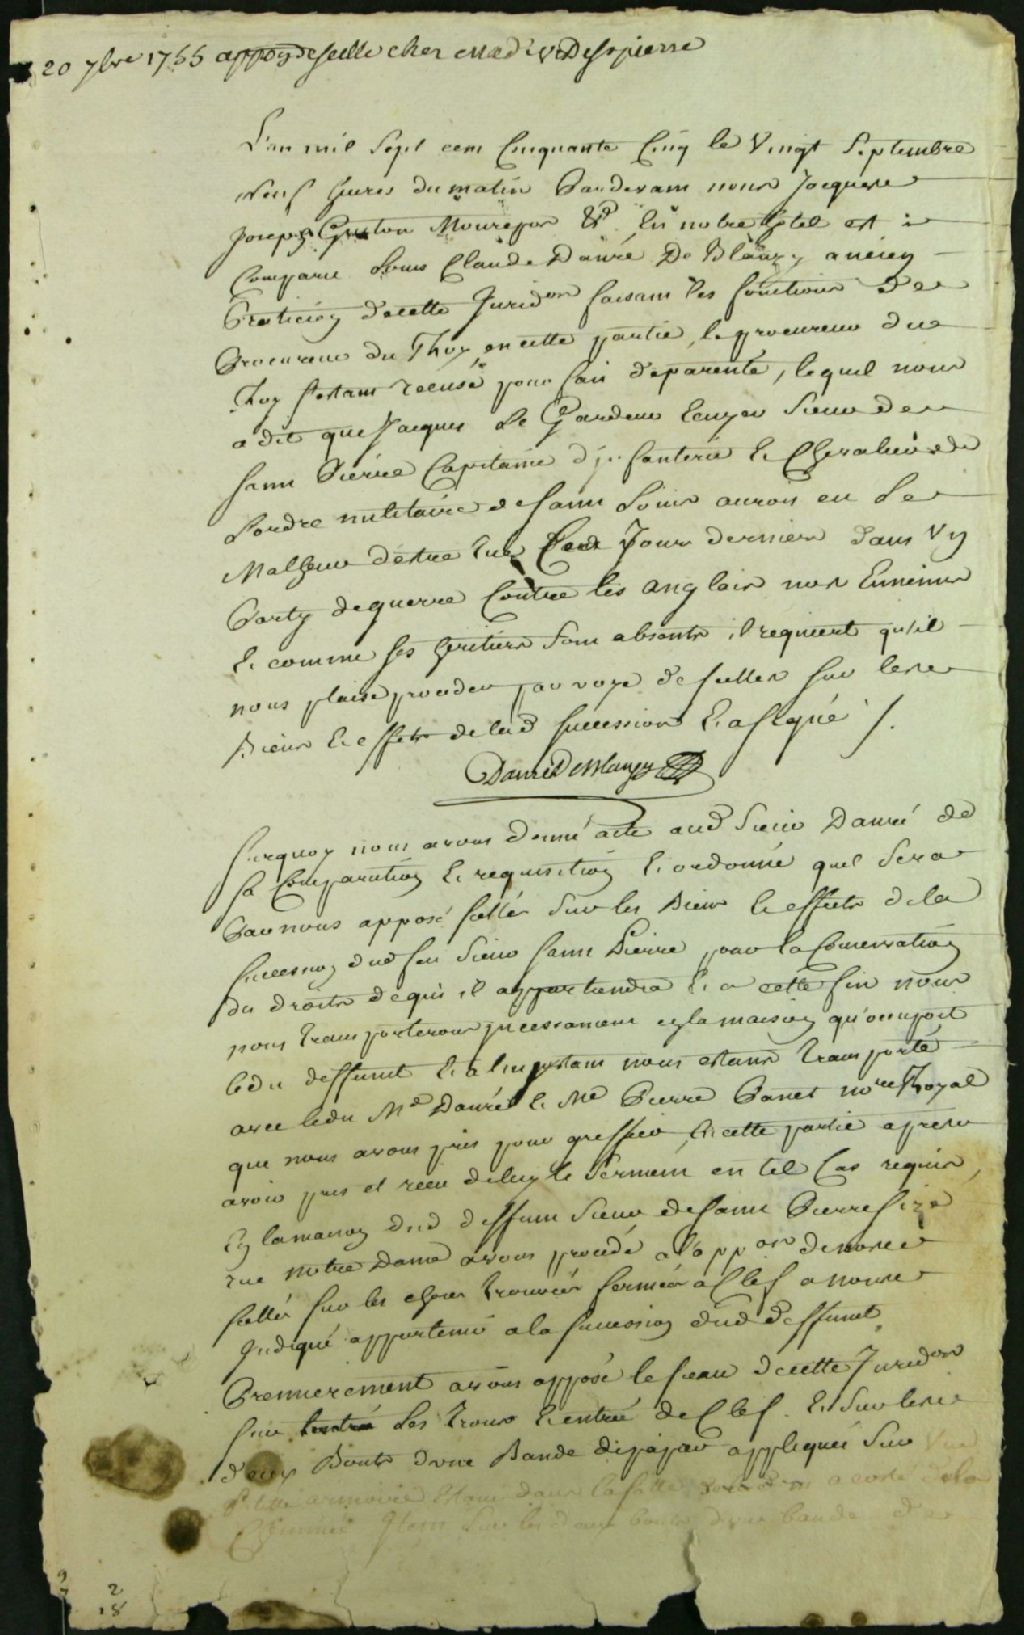 20 7bre 1755 appon de scellé chez Mad. de St pierre
L'an mil Sept cens Cinquante Cinq le Vingt Septembre
Neuf heures du matin Pardevant nous Jacques
Joseph Guiton Monrepos &ca En notre hôtel est
Comparu Louis Claude Danré De Blanzy ancien
Praticien de cette Juridon faisant les fonctions de
Procureur du Roy en cette partie, le procureur du
Roy s'estant recusé pour fait de parenté, lequel nous
a dit que Jacques Le Gardeur Ecuyer Sieur de
Saint Pierre Capitaine d'infanterie & Chevalier de
Lordre militaire de Saint Louis auroit eu le
Malheur d'estre tué Ces Jours derniers dans Un
Party de guerre Contre les anglois nos Ennemis
Et comme ses heritiers sont absents il requiert qu'il
nous plaise proceder par voye de scellés sur les
Biens & effets de lad succession & a signé /.
Danré De Blanzy
Surquoy nous avons donné acte aud Sieur Danré de
sa Comparution & requisition & ordonné quil sera
Par nous apposé scellés sur les Biens & effets de la
succession dud feu Sieur Saint Pierre pour la Conservation
du droits de qui il appartiendra & a cette fin nous
nous transporterons incessament en la maison qu'occupoit
ledit deffunt & a l'instant nous estans transporté
avec ledit Me Danré & Me Pierre Panet nore Royal
que nous avons pris pour greffier en cette partie apres
avoir pris et reçu de luy le Serment en tel Cas requis,
En la maison dud deffunt Sieur de Saint Pierre size
rue Notre Dame avons procedé a l'appon de nosd
scellés sur les choses trouvées fermées a Clef a nous
Indiqué appartenir a la succession dud deffunt
Premierement avons apposé le sceau de cette Juridon
sur les trous & entrée de Clef & sur les
deux Bouts d'une Bande de papier appliquée sur Une
petite armoire Etant dans la salle a costé de la
Cheminée Item sur les deux bouts d'une bande de
2
18